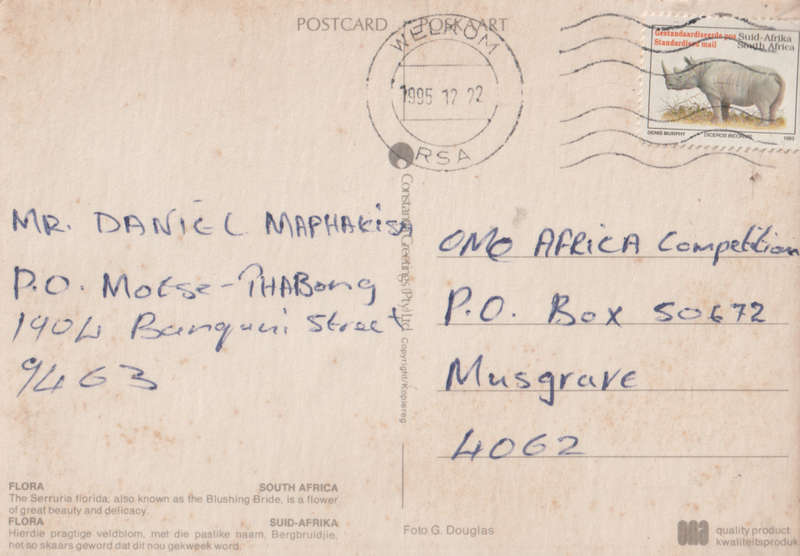 POSTCARD POSKAART
WELKOM
1995 12 22
RSA
Gestandaardiseerde pos
Standardised mail
Suid-Afrika
South Africa
DENIS MURPHY DICEROS BICORNIS 1993
MR. DANIEL MAPHAKISA
P.O. Motse-THABong
1904 Street
9463
Constantia Greetings (Pty) Ltd Copyright/Kopiereg
OMO AFRICA Competition
P.O. Box 50672
Musgrave
4062
FLORA SOUTH AFRICA
The Serruria florida, also known as the Blushing Bride, is a flower
of great beauty and delicacy.
FLORA SUID-AFRIKA
Hierdie pragtige veldblom, met die paslike naam, Bergbruidjie,
het so skaars geword dat dit nou gekweek word.
Foto G. Douglas
quality product
kwaliteitsproduk